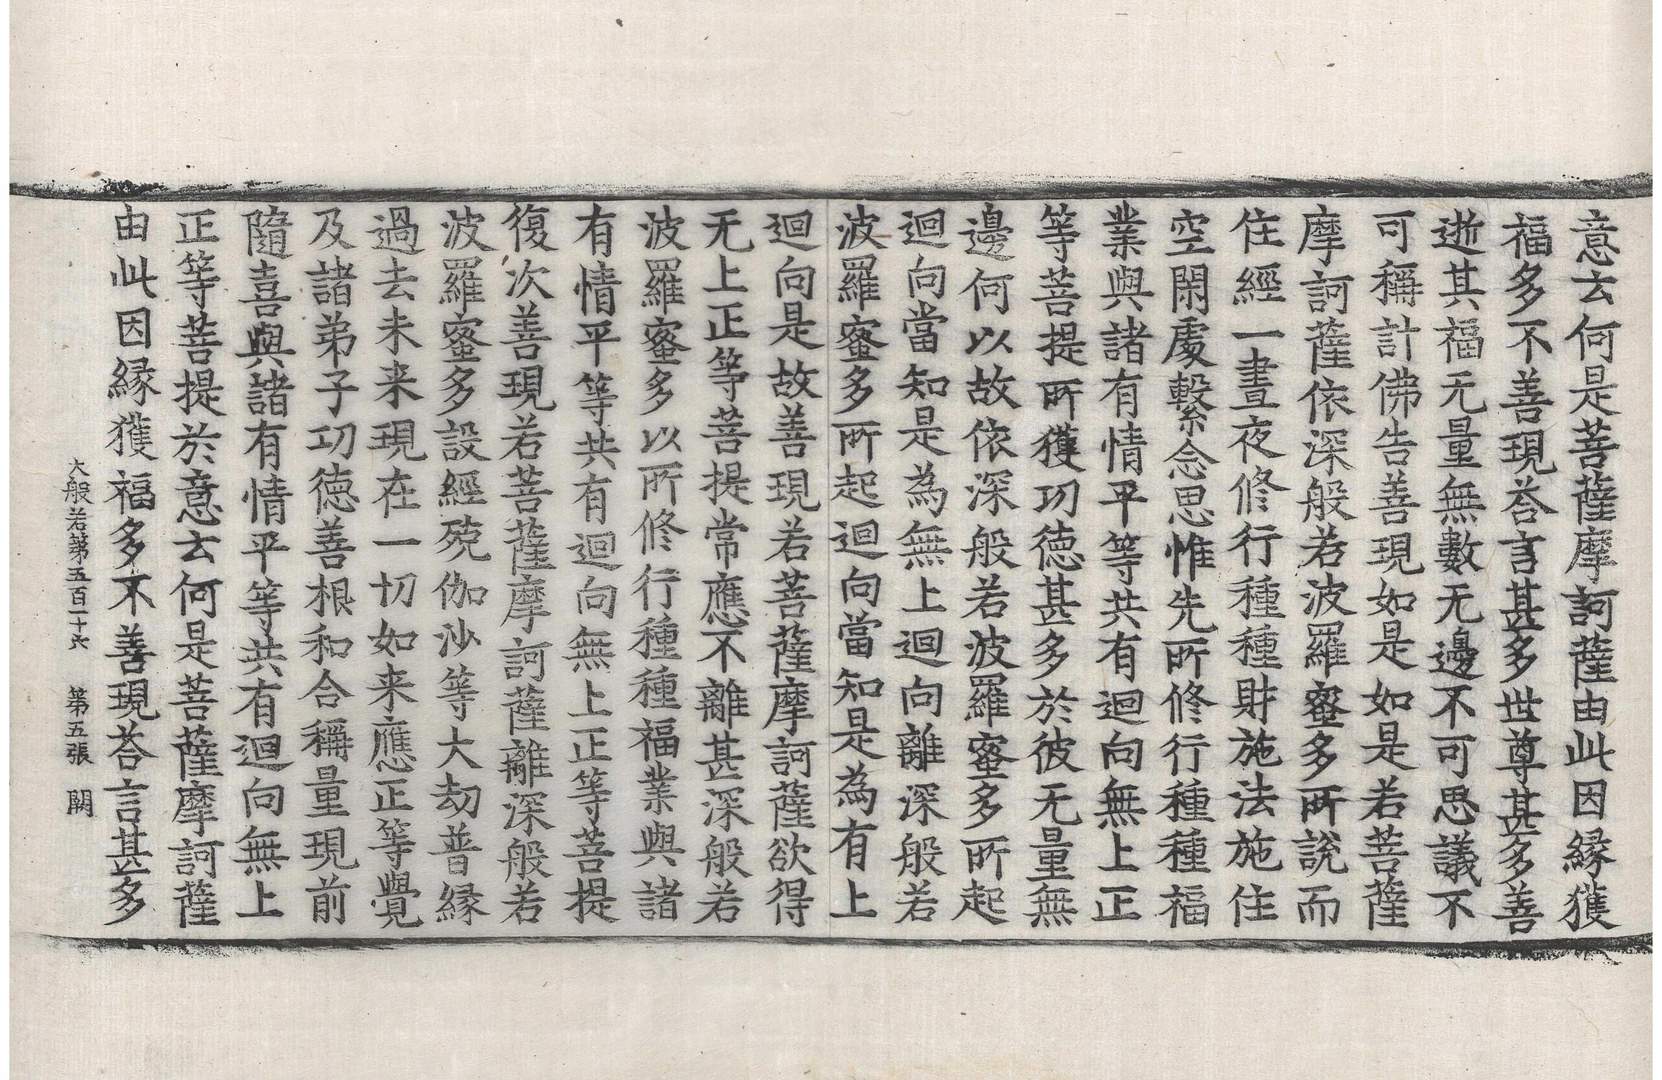 意云何是菩薩摩訶薩由此因縁獲
福多不善現荅言甚多世尊甚多善
逝其福无量無數无邊不可思議不
可稱計佛告善現如是如是若菩薩
摩訶薩依深般若波羅蜜多所說而
住經一晝夜修行種種財施法施住
空閑處繫念思惟先所修行種種福
業與諸有情平等共有迴向無上正
等菩提所獲功德甚多於彼无量無
邊何以故依深般若波羅蜜多所起
迴向當知是為無上迴向離深般若
波羅蜜多所起迴向當知是為有上
迴向是故善現若菩薩摩訶薩欲得
无上正等菩提常應不離甚深般若
波羅蜜多以所修行種種福業與諸
有情平等共有迴向無上正等菩提
復次善現若菩薩摩訶薩離深般若
波羅蜜多設經殑伽沙等大劫普緣
過去未来現在一切如来應正等覺
及諸弟子功德善根和合稱量現前
隨喜與諸有情平等共有迴向無上
正等菩提於意云何是菩薩摩訶薩
由此因緣獲福多不善現荅言甚多
大般若第五百十六 第五張 闕